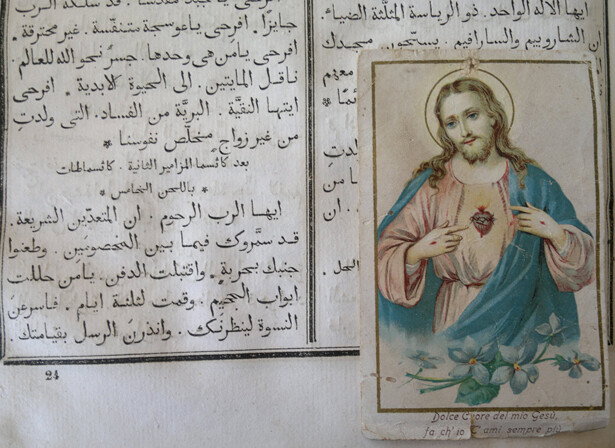 ايها الاله الواحد. ذو الرياسة المثلَّثة الضياء.
الشاروبيم والسارافيم. مجدك
قد سلكه الرب
جايزًا. افرحي ياعوسجة متنفّسة. غير محترقة.
افرحي يامن هي وحدها. جسرٌ نحو الله للعالم.
ناقل المايتين. الى الحيوة الابدية. افرحي
ايتها النقيَّة. البريَّة من الفساد. التي ولدتِ
من غير زواجٍ مخلّص نفوسنا *
بعد كاثسما المزامير الثانية. كاثسماطات
* باللحن الخامس *
ايها الرب الرحوم. ان المتعدّين الشريعة.
قد سمَّروك فيما بين. وطعنوا
جنبك بحربةٍ. واقتبلت الدفن. يامن حللت
ابواب الجحيم. وقمت لثلثة ايام. فاسرعنَ
النسوة لينظرنك. وانذرنَ الرسل بقيامتك.
24
Dolce Cuore del mio Gesù,
fa ch'io T'ami sempre più.